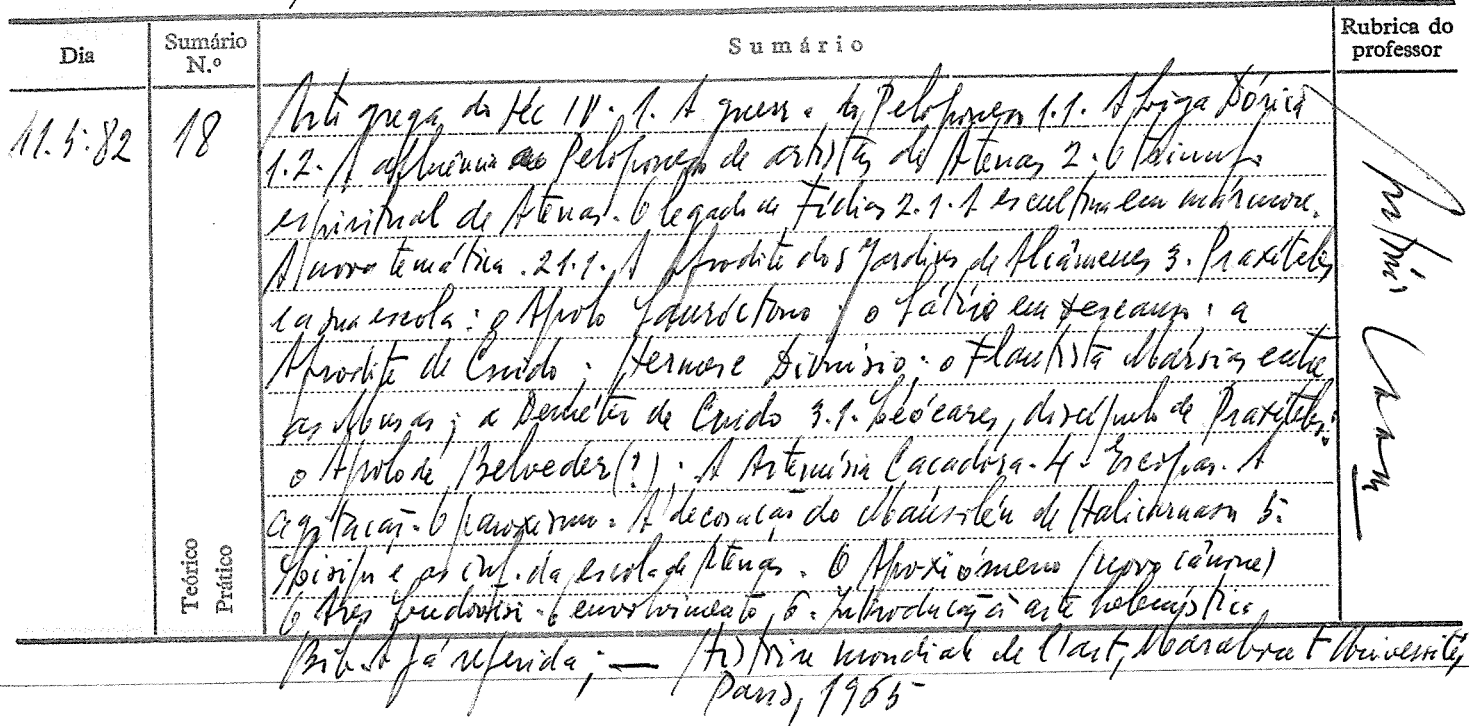 Dia
Sumário N.º
Sumário
Rubrica do professor
11.5.82
18
Arte grega do Séc IV. 1. A guerra do Peloponeso 1.1. A Liga Dórica
1.2. A afluência ao Peloponeso de artistas de Atenas 2. O triunfo
espiritual de Atenas. O legado de Fídias 2.1. A escultura em mármore.
A nova temática. 2.1.1. A Afrodite dos Jardins de Alcâmenes 3. Praxíteles
e a sua escola: o Apolo Sauróctono; o Sátiro em descanso; a
Afrodite de Cnido; Hermes e Dionísio; o Flautista Mársias entre
as Musas; a Deméter de Cnido 3.1. Leócares, discípulo de Praxíteles:
o Apolo de Belveder (?); A Artemísia Caçadora. 4. Escopas. A
agitação. O paroxismo. A decoração do Mausoléu de Halicarnasso 5.
Lisipo e as inf. da escola de Atenas. O Apoxiómeno (novo cânone)
O Ares Ludovisi. O envolvimento. 6. Introdução à arte helenística.
Teórico
Prático
Bib. A já referida; — Histoire mondiale de l'art, Marabout Université,
Paris, 1965